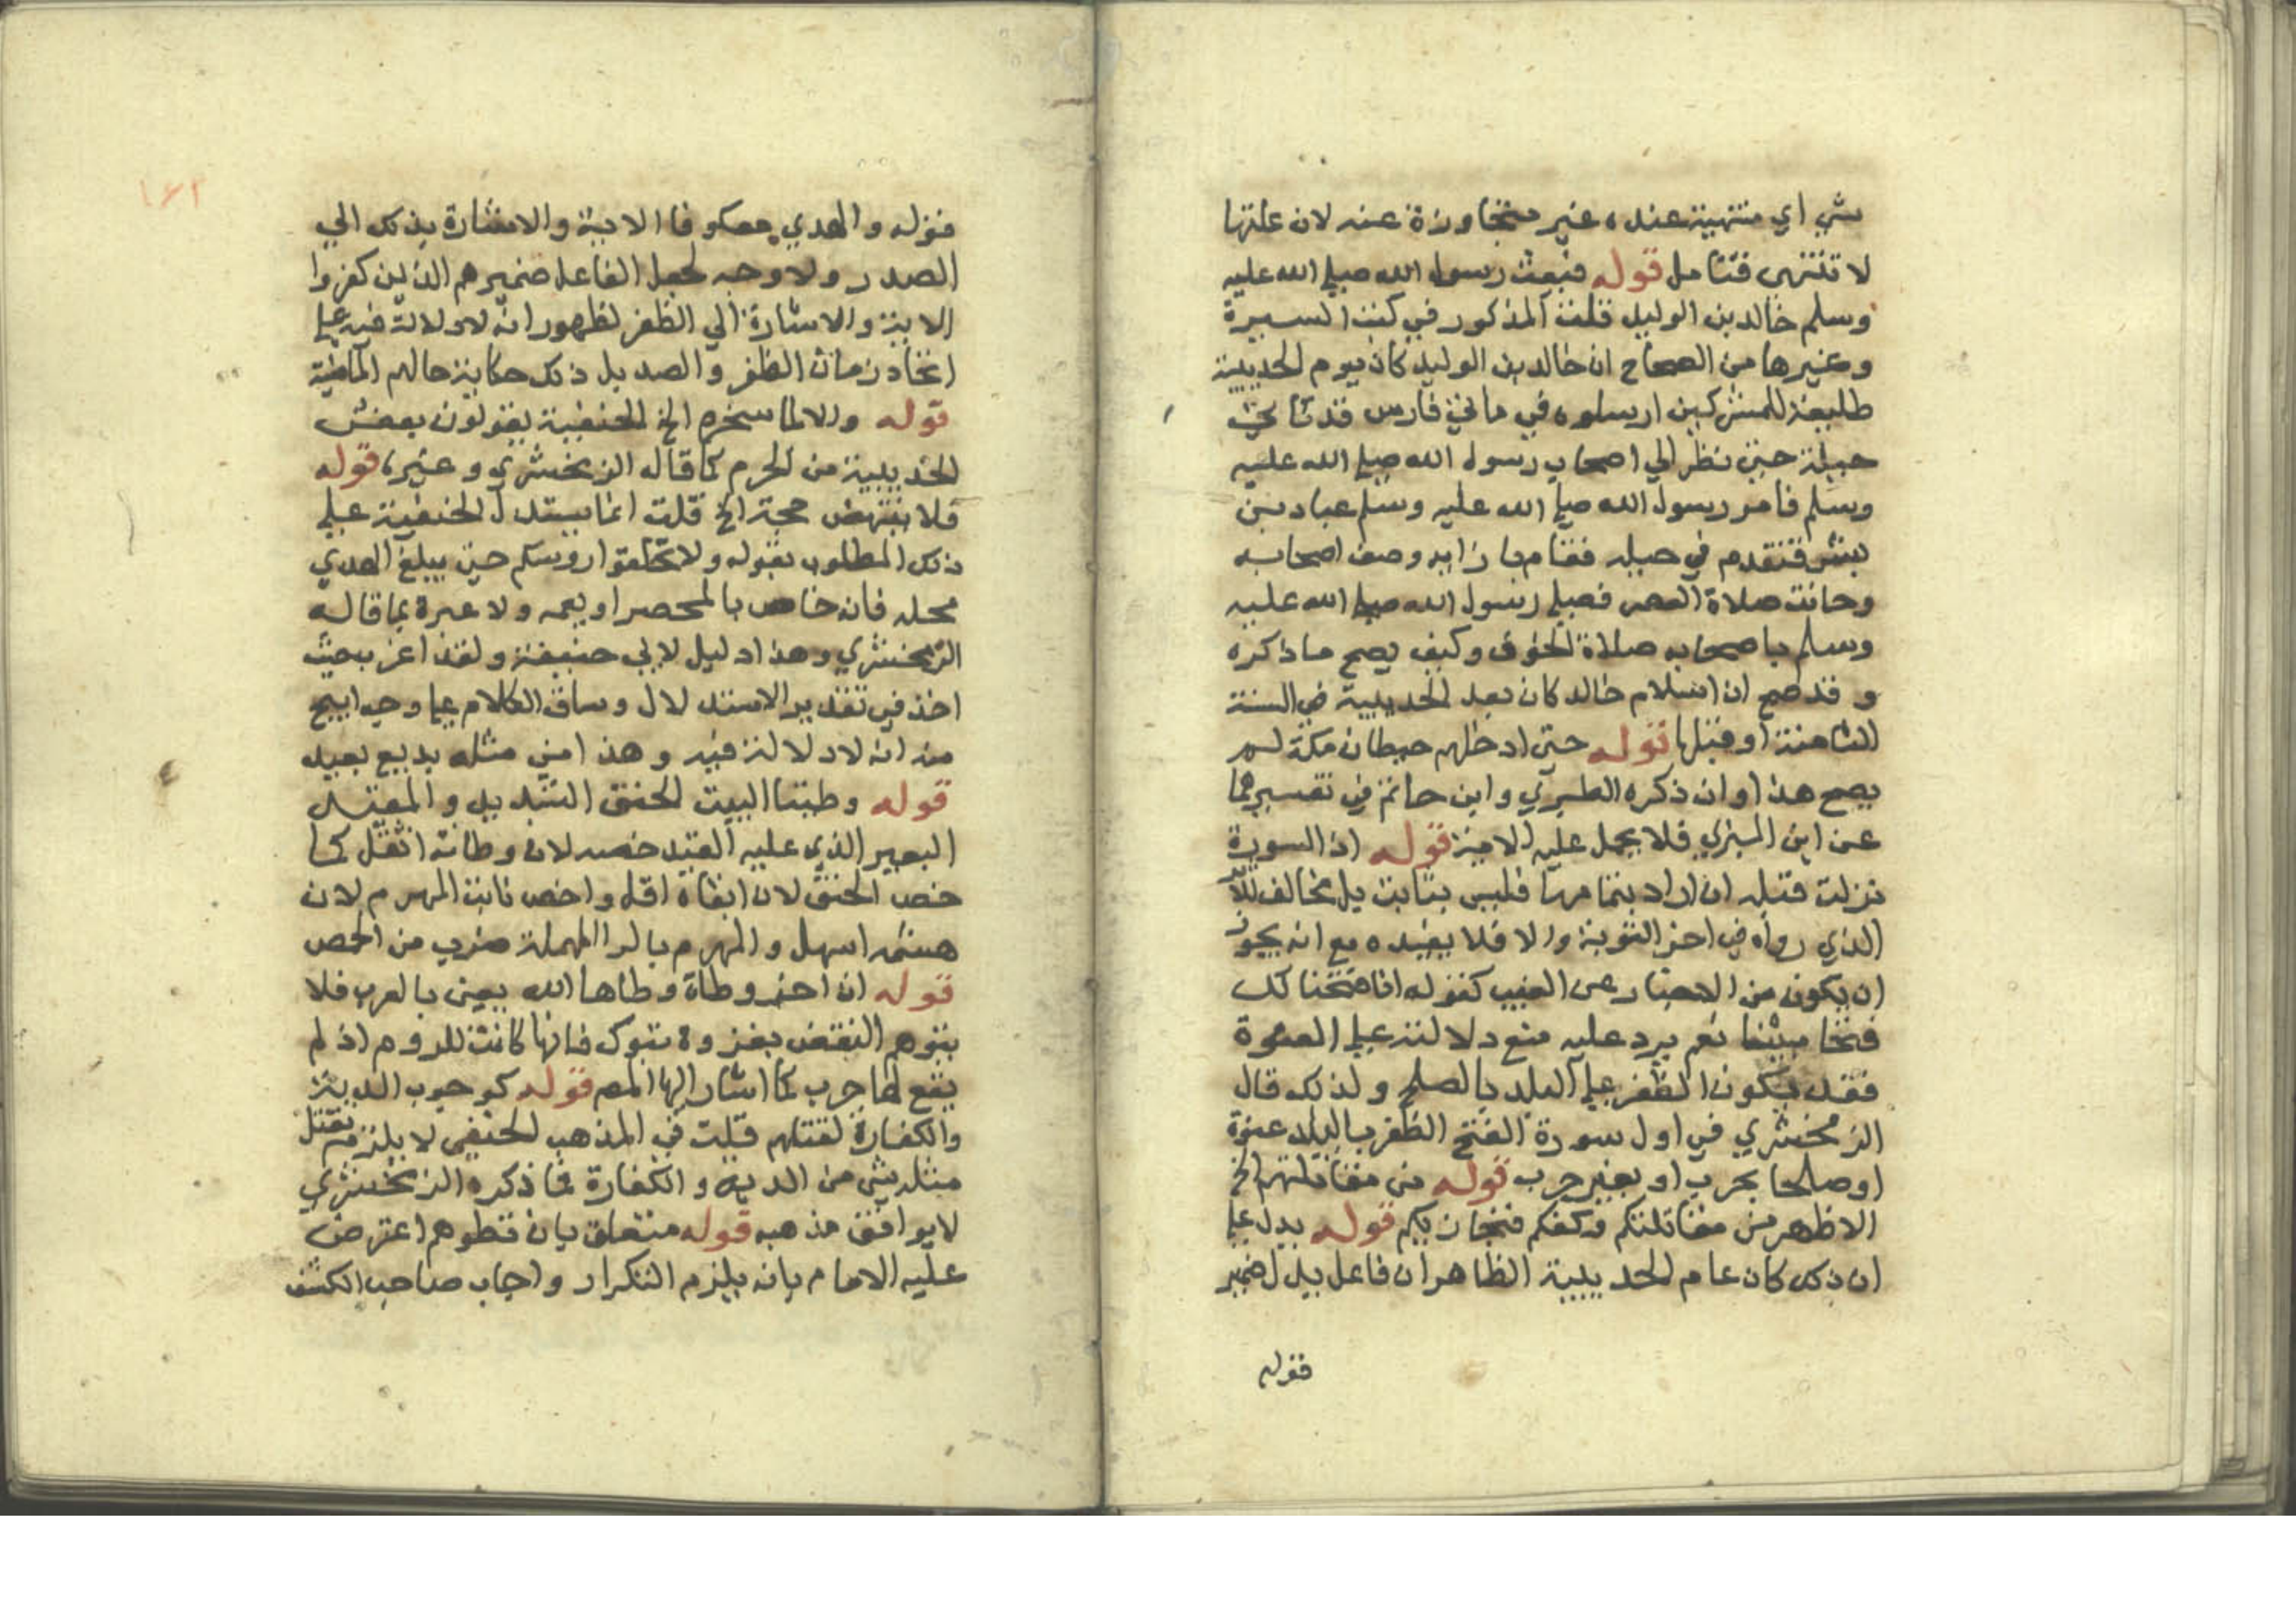 شي اي منتهية عنده غير متجاوزة عنه لان علتها
لا تنتهي فتامل قوله فبعث رسول الله صلي الله عليه
وسلم خالد بن الوليد قلت المذكور في كتب السيرة
وغيرها من الصحاح ان خالد بن الوليد كان يوم الحديبية
طليعة للمشركين ارسلوه في مائتي فارس فدنا في
خيله حتى نظر الي اصحاب رسول الله صلي الله عليه
وسلم فامر رسول الله صلي الله عليه وسلم عباد بن
بشر فتقدم في خيله فقام بازايه وصف اصحابه
وحانت صلاة العصر فصلي رسول الله صلي الله عليه
وسلم باصحابه صلاة الخوف وكيف يصح ما ذكره
و قد صح ان اسلام خالد كان بعد الحديبية في السنة
الثامنة او قبلها قوله حتى ادخلهم حيطان مكة لم
يصح هذا وان ذكره الطبري وابن حاتم في تفسيرهما
عن ابن ابزي فلا يحمل عليه الاية قوله اذ السورة
نزلت قبله ان اراد بتمامها فليس بثابت بل مخالف للاثر
الذي رواه في اخر التوبة والا فلا يفيده مع انه يجوز
ان يكون من الاخبار عن الغيب كقوله انا فتحنا لك
فتحا مبينا نعم يرد عليه منع دلالته علي العنوة
فقد يكون الظفر علي البلد بالصلح ولذلك قال
الزمخشري في اول سورة الفتح الظفر بالبلد عنوة
او صلحا بحرب او بغير حرب قوله من مقاتلتهم الخ
الاظهر من مقاتلتكم وكفكم فنجازيكم قوله يدل علي
ان ذلك كان عام الحديبية الظاهر ان فاعل يدل ضمير
فقوله
١٤٢
فقوله والهدي معكوفا الاية والاشارة بذلك الي
الصدر ولا وجه لجعل الفاعل ضميرهم الذين كفروا
الاية والاشارة الي الظفر لظهور انه لا دلالة فيه علي
اتحاد زمان الظفر والصد بل ذلك حكاية حالهم الماضية
قوله والا لما نحره الخ الحنفية يقولون بعض
الحديبية من الحرم كما قاله الزمخشري وغيره قوله
فلا ينتهض حجة الخ قلت انما يستدل الحنفية علي
ذلك المطلوب بقوله ولا تحلقوا روسكم حتى يبلغ الهدي
محله فانه خاص بالمحصر او يعمه ولا عبرة بما قاله
الزمخشري وهذا دليل لابي حنيفة ولقد اغرب حيث
اخذ في تقدير الاستدلال وساق الكلام علي وجه ابيح
من انه لا دلالة فيه وهذا من مثله بديع بعيد
قوله وطبنا البيت الحنق الشديد والمقيد
البعير الذي عليه القيد خصه لان وطاته اثقل كما
خص الحنق لان ابقاه اقل واخص نابت الهرم لان
هشمه اسهل والهرم بالرا المهملة ضرب من الحمض
قوله ان اخر وطاة وطاها الله يعني بالعرب فلا
يتوهم النقض بغزوة تبوك فانها كانت للروم اذ لم
يقع لها حرب كما اشار اليها المص قوله كوجوب الدية
والكفارة لقتلهم قلت في المذهب الحنفي لا يلزم بقتل
مثله شي من الدية والكفارة فما ذكره الزمخشري
لا يوافق مذهبه قوله متعلق بان تطوهم اعترض
عليه الامام بانه يلزم التكرار واجاب صاحب الكشف